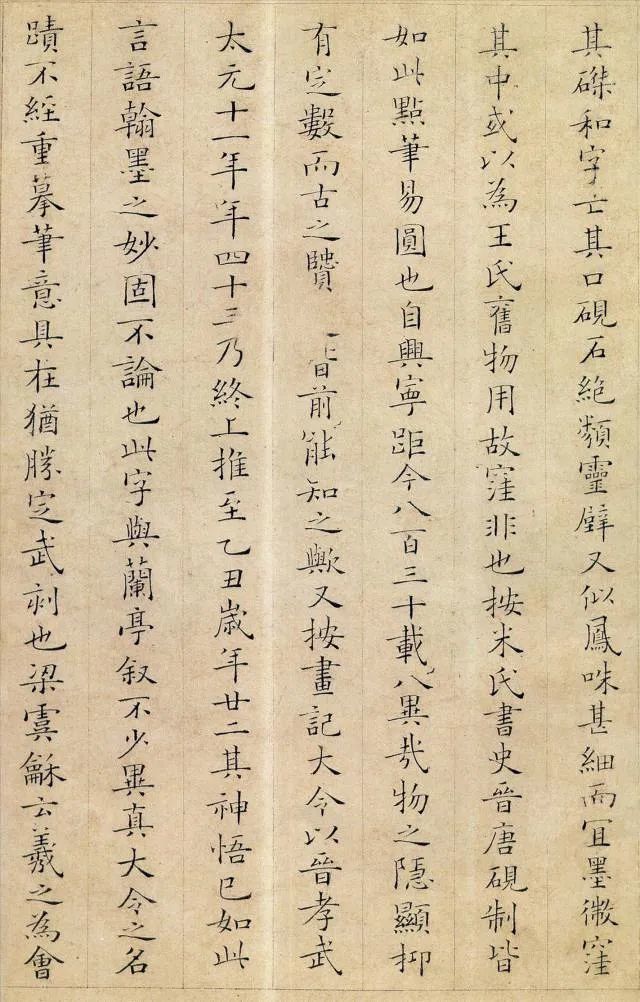 其磔和字亡其口硯石絶類靈壁又似鳳咮甚細而宜墨微窪
其中或以為王氏舊物用故窪非也按米氏書史晉唐硯制皆
如此點筆易圓也自興寧距今八百三十載異哉物之隱顯抑
有定數而古之贒 前能知之歟又按畫記大令以晉孝武
太元十一年年四十三乃終上推至乙丑歲年廿二其神悟已如此
言語翰墨之妙固不論也此字與蘭亭叙不少異真大令之名
蹟不經重摹筆意具在猶勝定武刻也梁虞龢云羲之為會